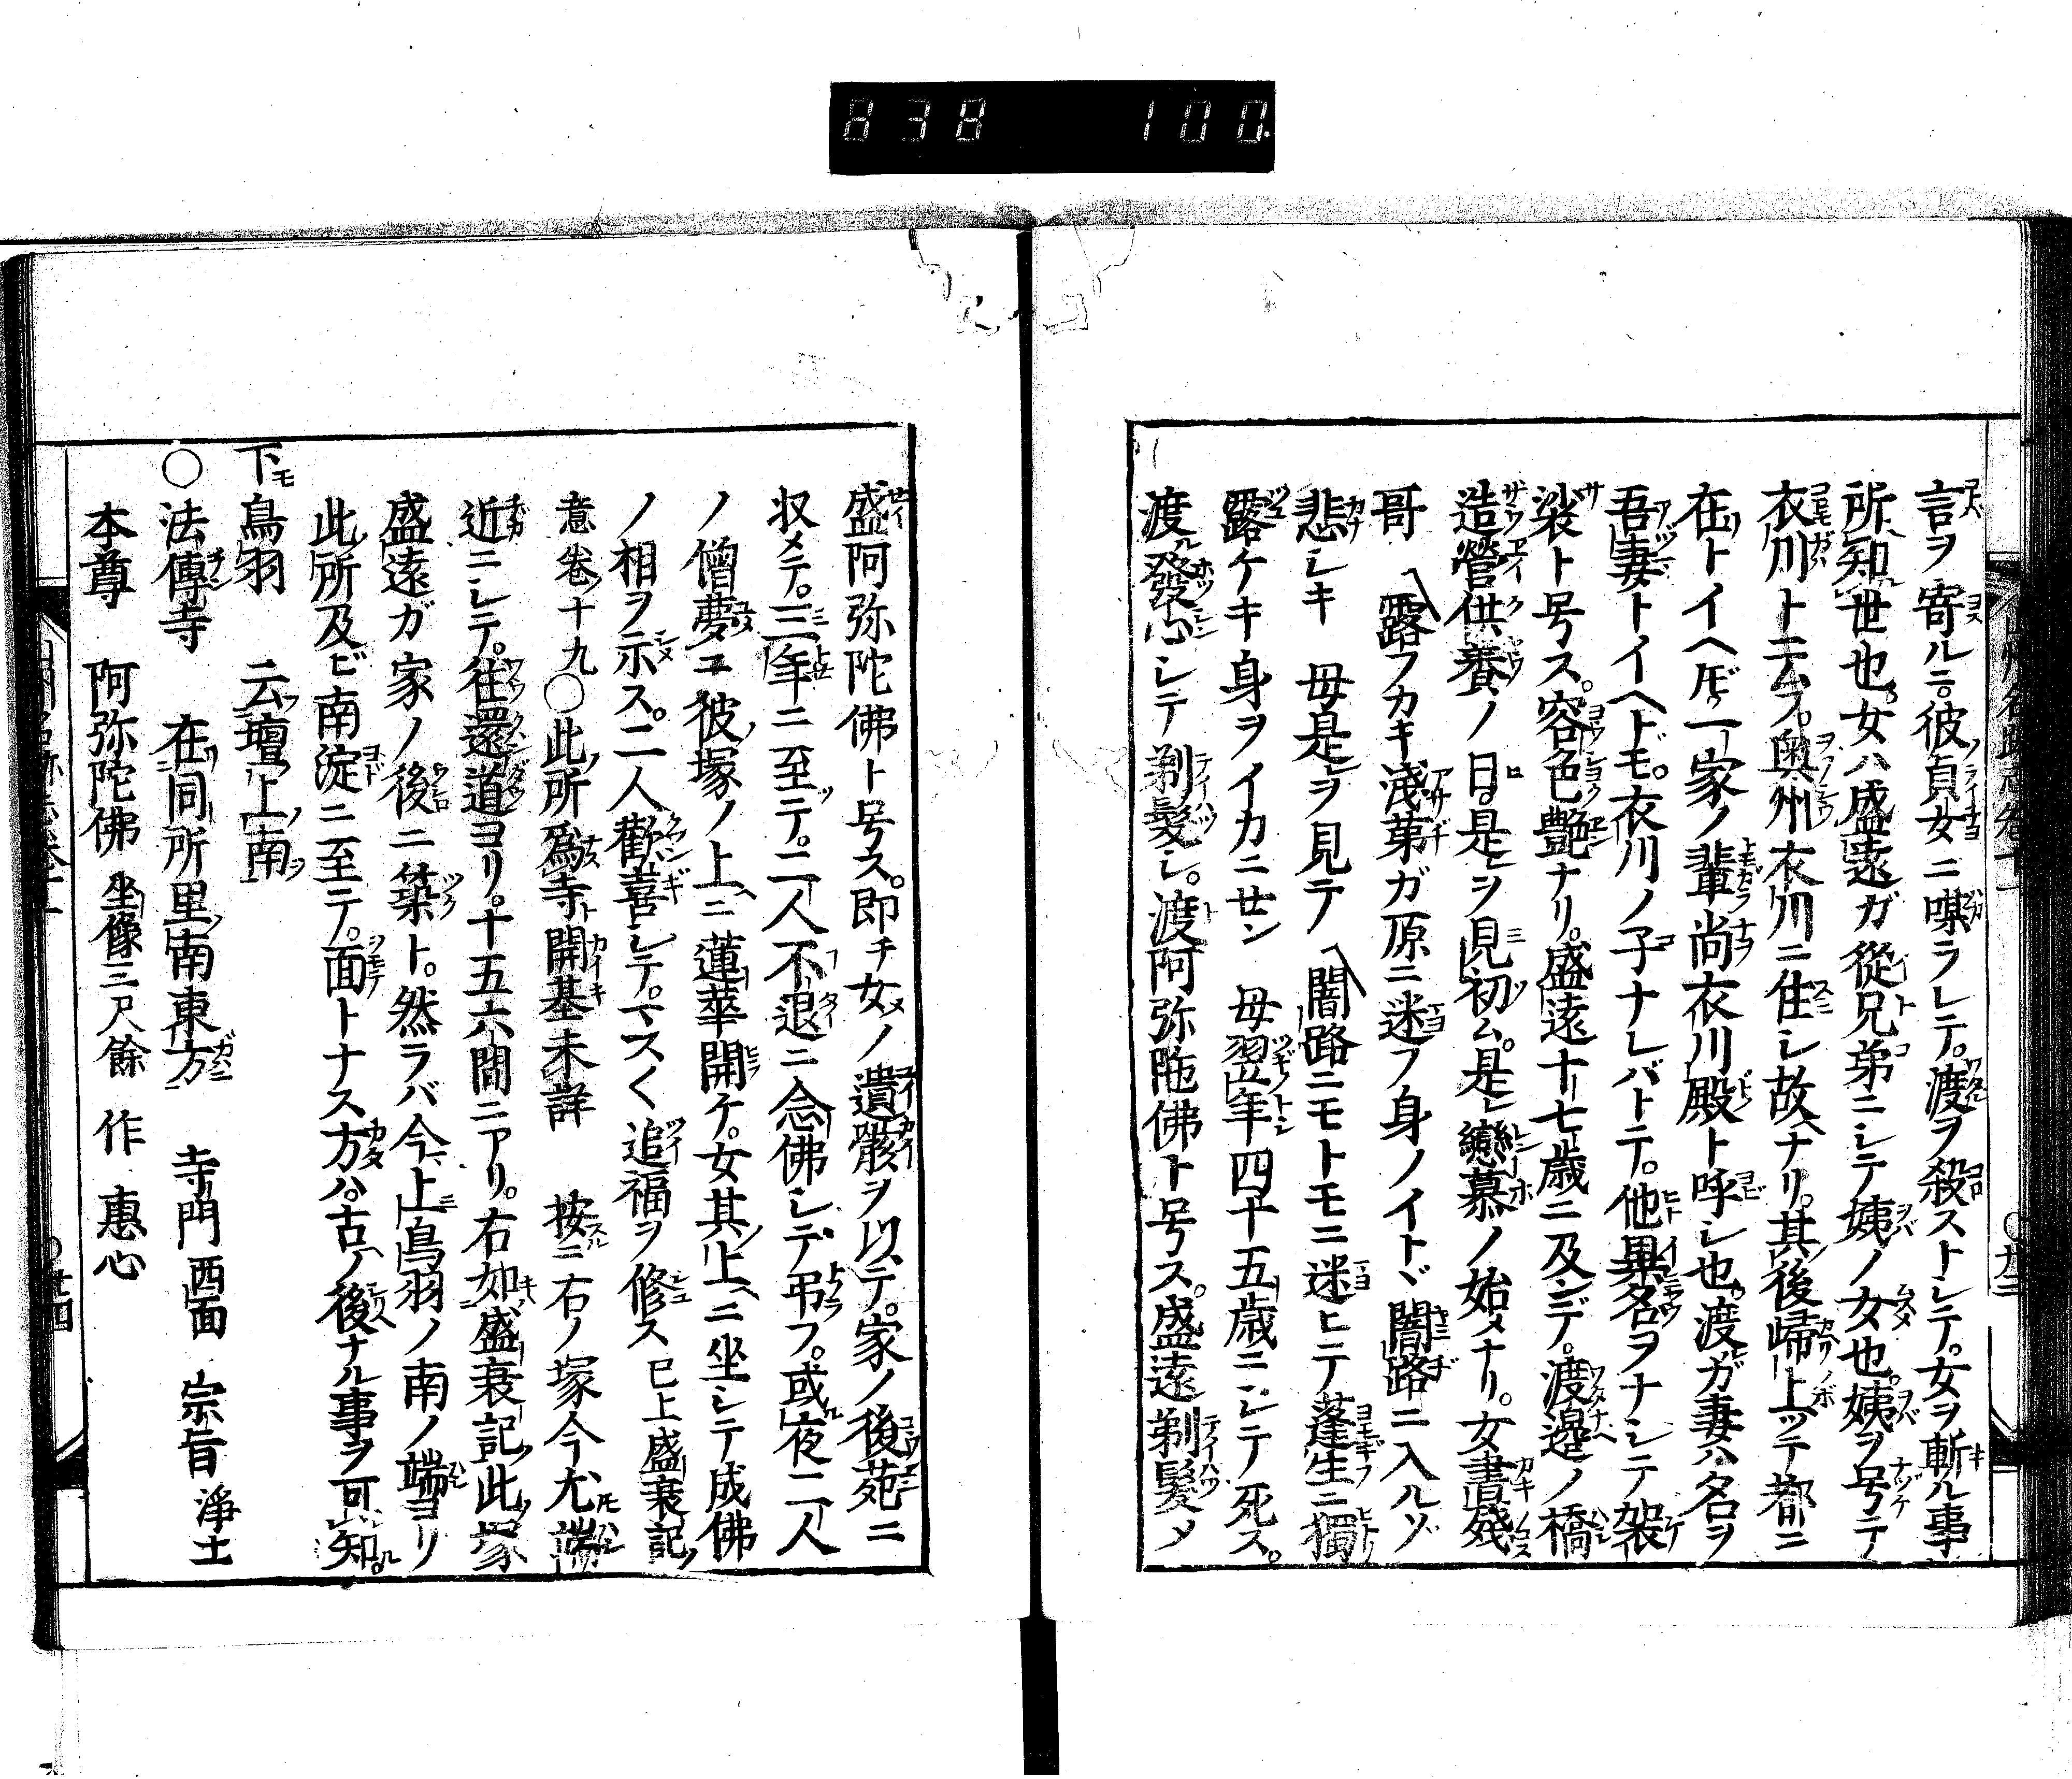 838 100.
言ヲ寄ルニ。彼貞女ニ嘆ラレテ。渡ヲ殺ストシテ。女ヲ斬ル事
所知世也。女ハ盛遠ガ從兄弟ニシテ姨ノ女也。姨ヲ号テ
衣川ト云フ。奥州衣川ニ住シ故ナリ。其後帰上ッテ都ニ
在トイヘドモ一家ノ輩尚衣川殿ト呼シ也。渡ガ妻ハ名ヲ
吾妻トイヘドモ。衣川ノ子ナレバトテ。他異名ヲナシテ袈
裟ト号ス。容色艶ナリ。盛遠十七歳ニ及ンデ。渡邉ノ橋
造營供養ノ日。是ヲ見初ム。是レ戀慕ノ始メナリ。女書殘
哥 〽露フカキ淺茅ガ原ニ迷フ身ノイトヾ闇路ニ入ルゾ
悲シキ 母是ヲ見テ 〽闇路ニモトモニ迷ヒテ蓬生ニ獨
露ケキ身ヲイカニセン 母翌年四十五歳ニシテ死ス。
渡發心シテ剃髮シ。渡阿弥陁佛ト号ス。盛遠剃髮メ
盛阿弥陀佛ト号ス。即チ女ノ遺骸ヲ以テ。家ノ後苑ニ
収メテ。三年ニ至テ。二人不退ニ念佛シテ弔フ。或夜二人
ノ僧夢ニ彼塚ノ上ニ蓮華開ケ。女其上ニ坐シテ成佛
ノ相ヲ示ス。二人歡喜シテ。マスく追福ヲ修ス 已上盛衰記ノ
意卷十九 〇此所爲寺開基未詳 按ニ右ノ塚今尤端
近ニシテ。往還道ヨリ。十五六間ニアリ。右如盛衰記此塚
盛遠ガ家ノ後ニ築ト。然ラバ今上鳥羽ノ南ノ端ヨリ
此所及ビ南淀ニ至テ。面トナス方ハ。古ノ後ナル事ヲ可知。
下鳥羽 云壇上南
〇法傳寺 在同所里南東方 寺門西面 宗旨淨土
本尊 阿弥陀佛 坐像三尺餘 作 惠心